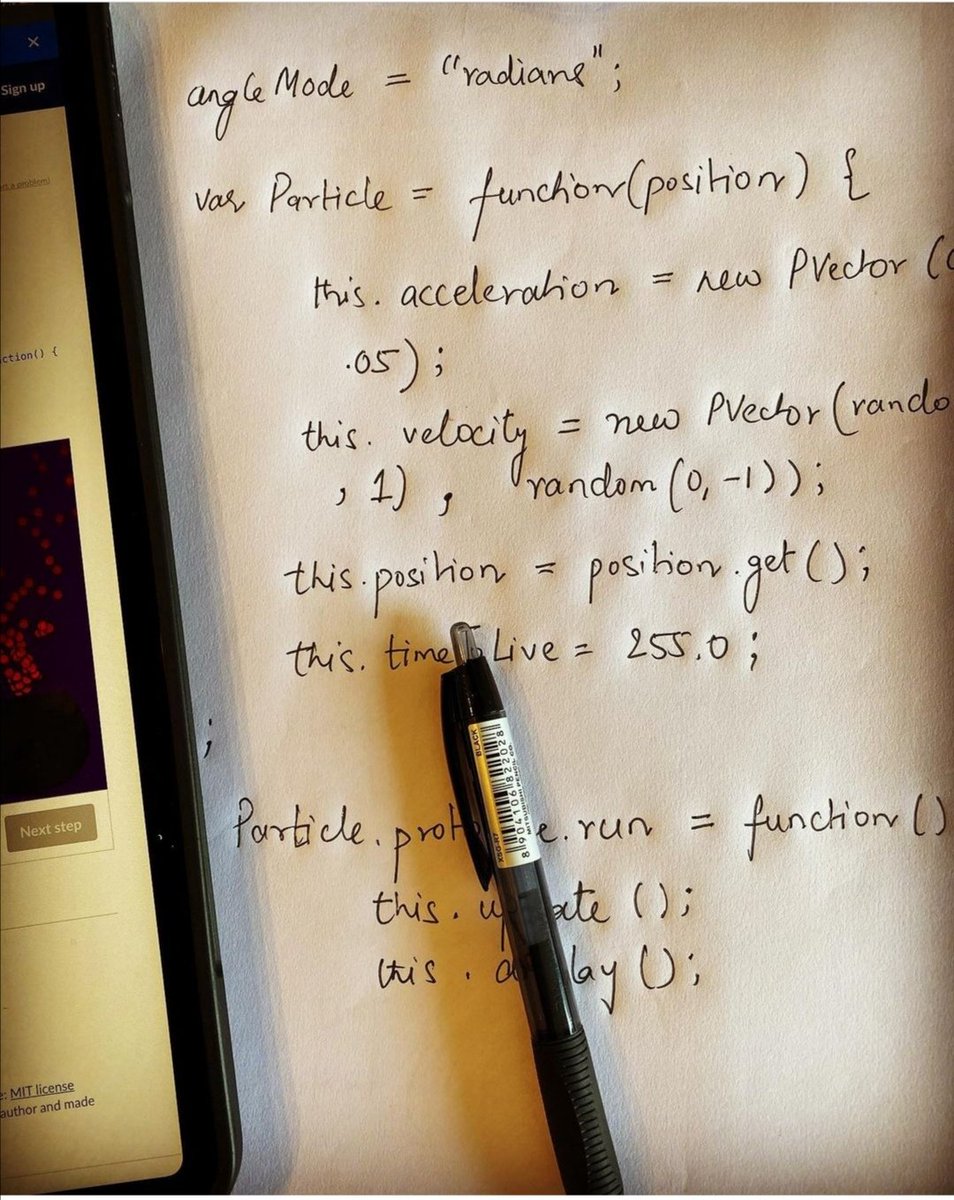 angleMode = "radians";
var Particle = function(position) {
this. acceleration = new PVector (
.05);
this. velocity = new PVector(rando
, 1) , random (0, -1));
this.position = position.get();
this. time Live = 255.0;
;
Particle. .run = function()
this. ();
this. ();
×
Sign up
ction() {
Next step
MIT license
author and made
BLACK
8904106822028
MITSUBISHI PENCIL CO.